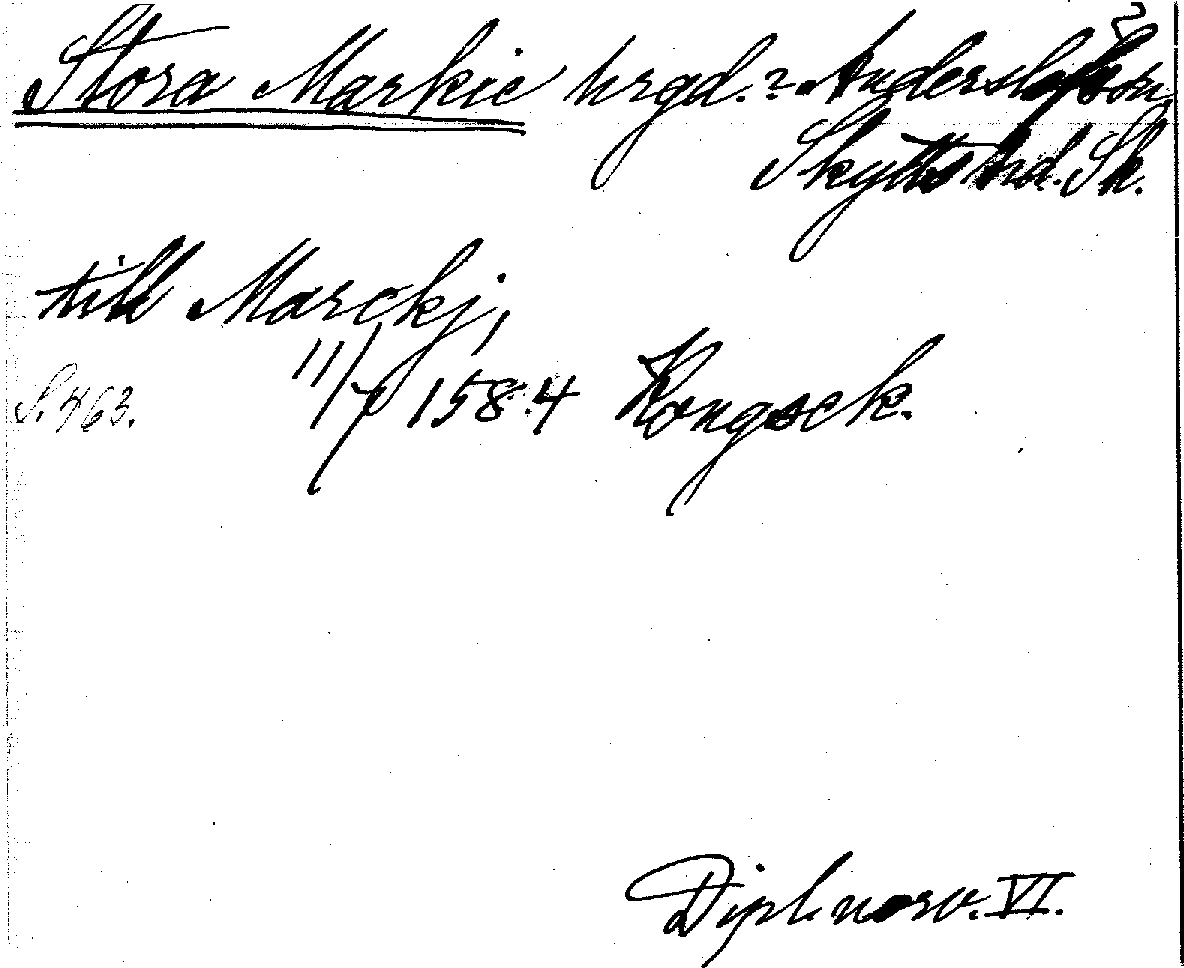 Stora Markie hrgd.? Anderslöfs sn,
Skytts hd. Sk.
till Marckj,
S. 463. 11/7 1584 Kongsek.
Dipl. norv. VI.